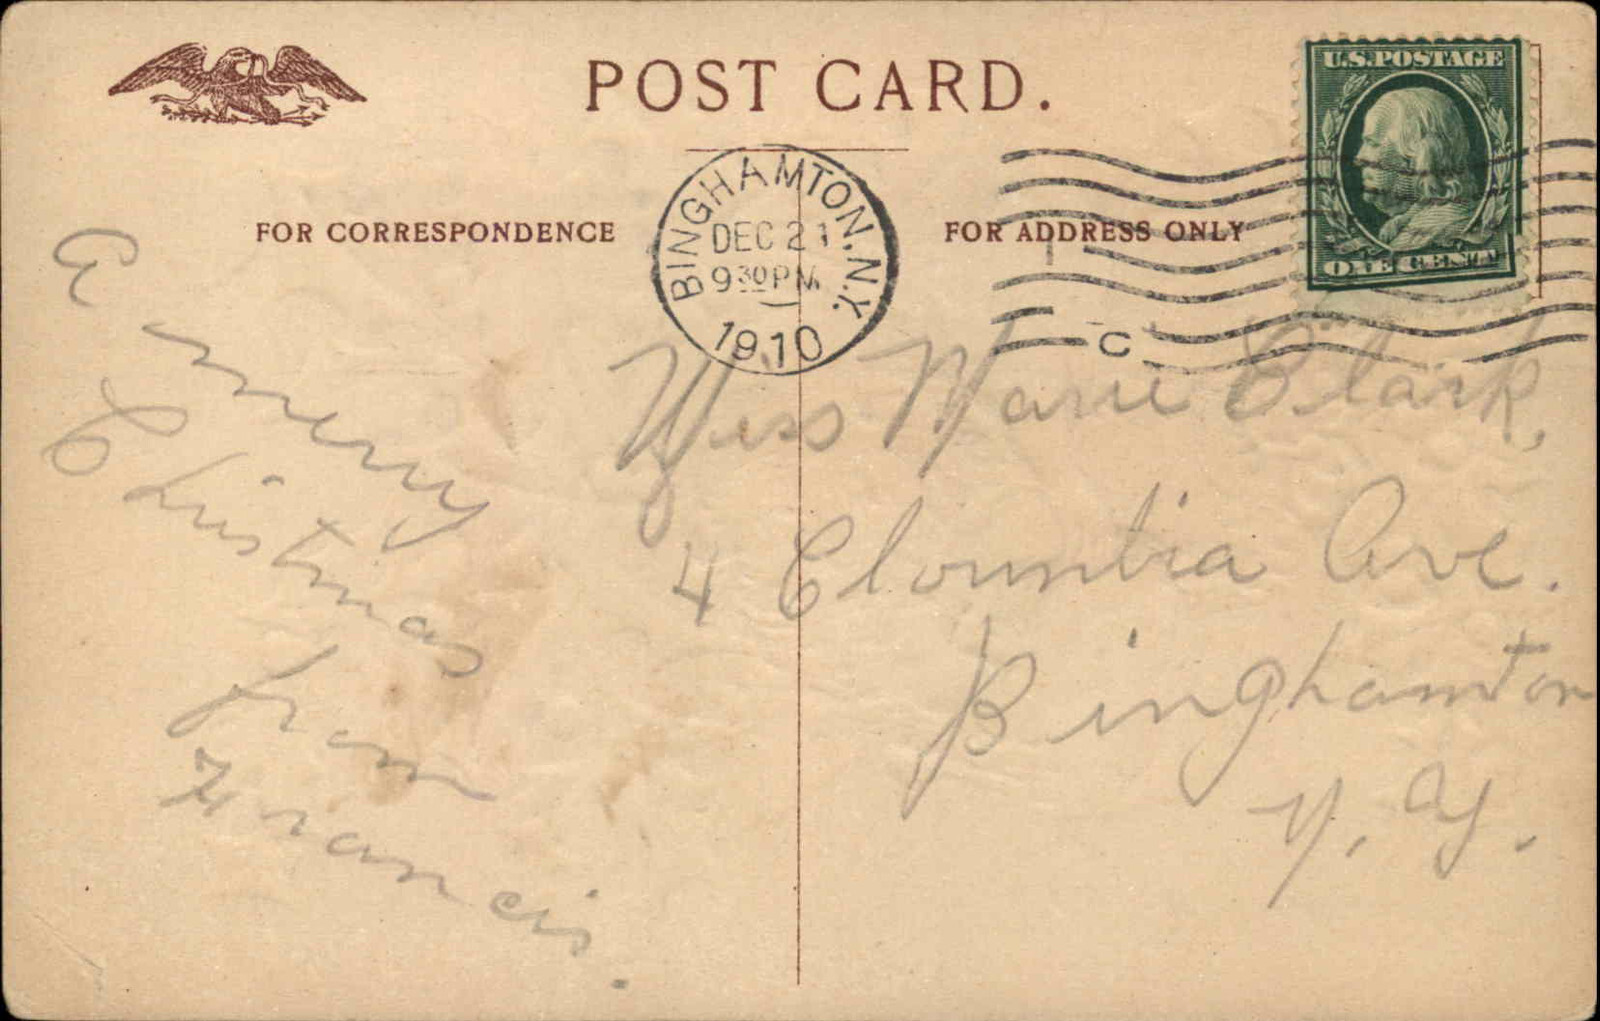 POST CARD.
U.S. POSTAGE
ONE CENT
BINGHAMTON, N.Y.
DEC 21
9 30 PM
1910
C
FOR CORRESPONDENCE
FOR ADDRESS ONLY
A merry
Christmas
from
Francis.
Miss Marie Clark,
4 Cloumbia Ave.
Binghamton
N. Y.